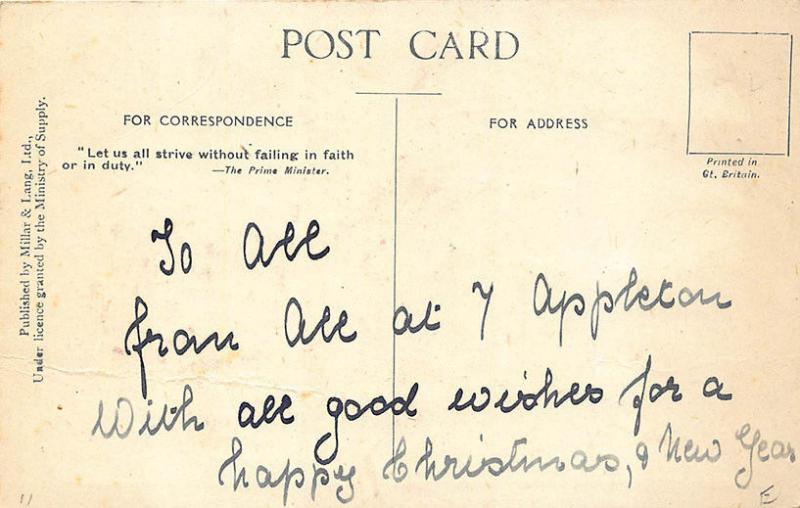 POST CARD
FOR CORRESPONDENCE
FOR ADDRESS
"Let us all strive without failing in faith
or in duty."
—The Prime Minister.
Printed in
Gt. Britain.
Published by Millar & Lang, Ltd.,
Under licence granted by the Ministry of Supply.
To All
from All at 7 Appleton
With all good wishes for a
happy Christmas, & New Year
11
E